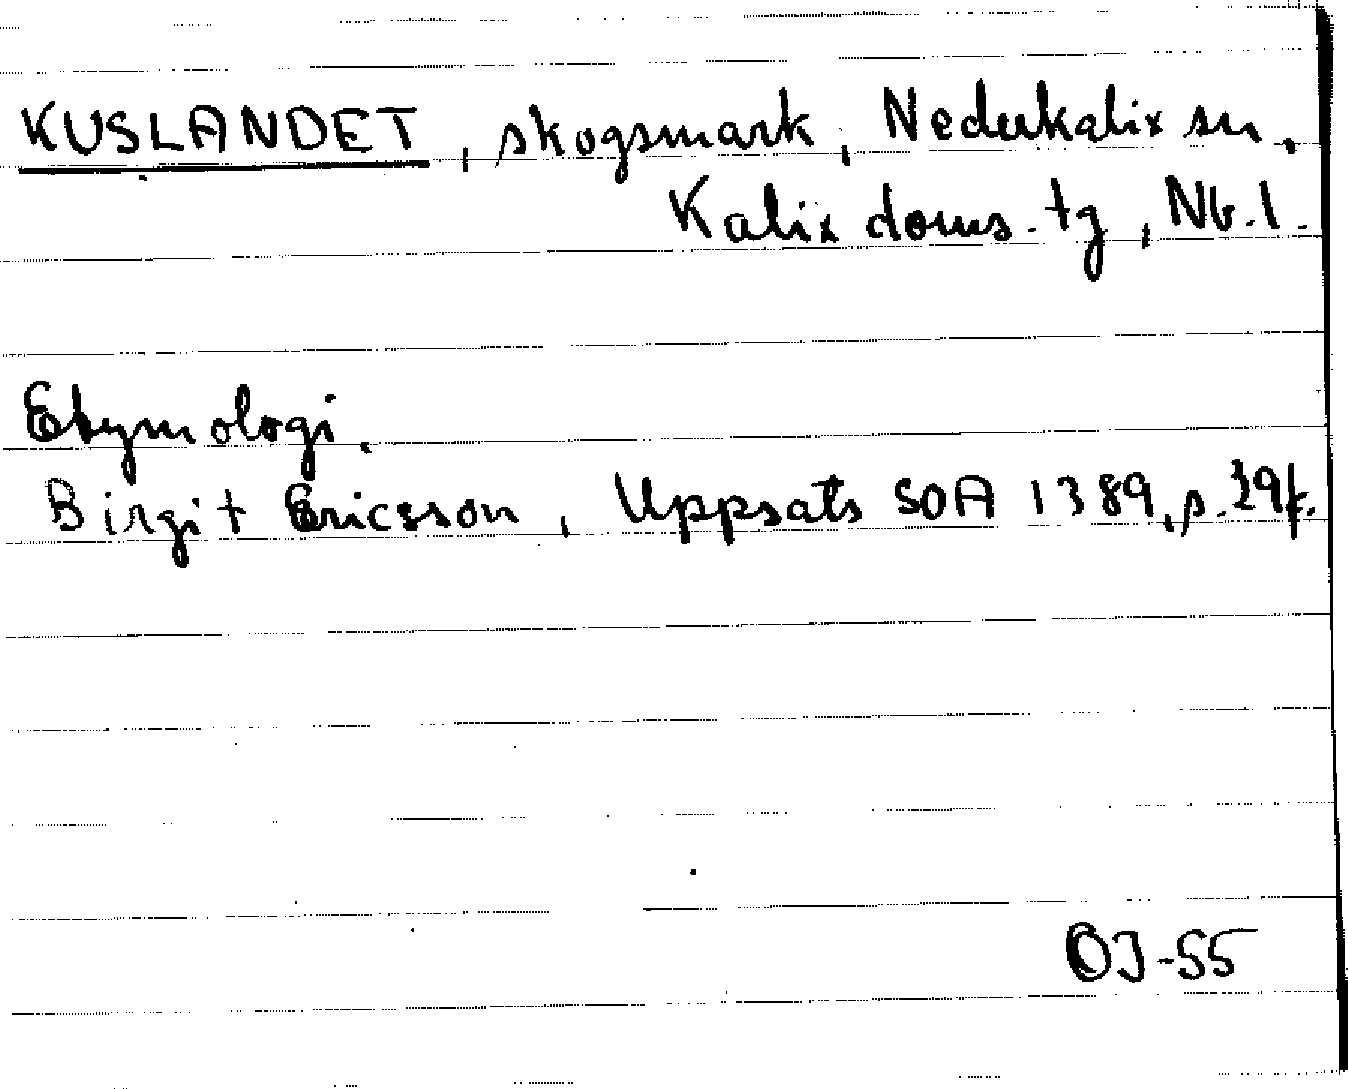 KUSLANDET, skogsmark, Nederkalix sn,
Kalix doms. tg, Nb. l.
Etymologi.
Birgit Ericsson, Uppsats SOA 1389, s. 29f.
OJ-55